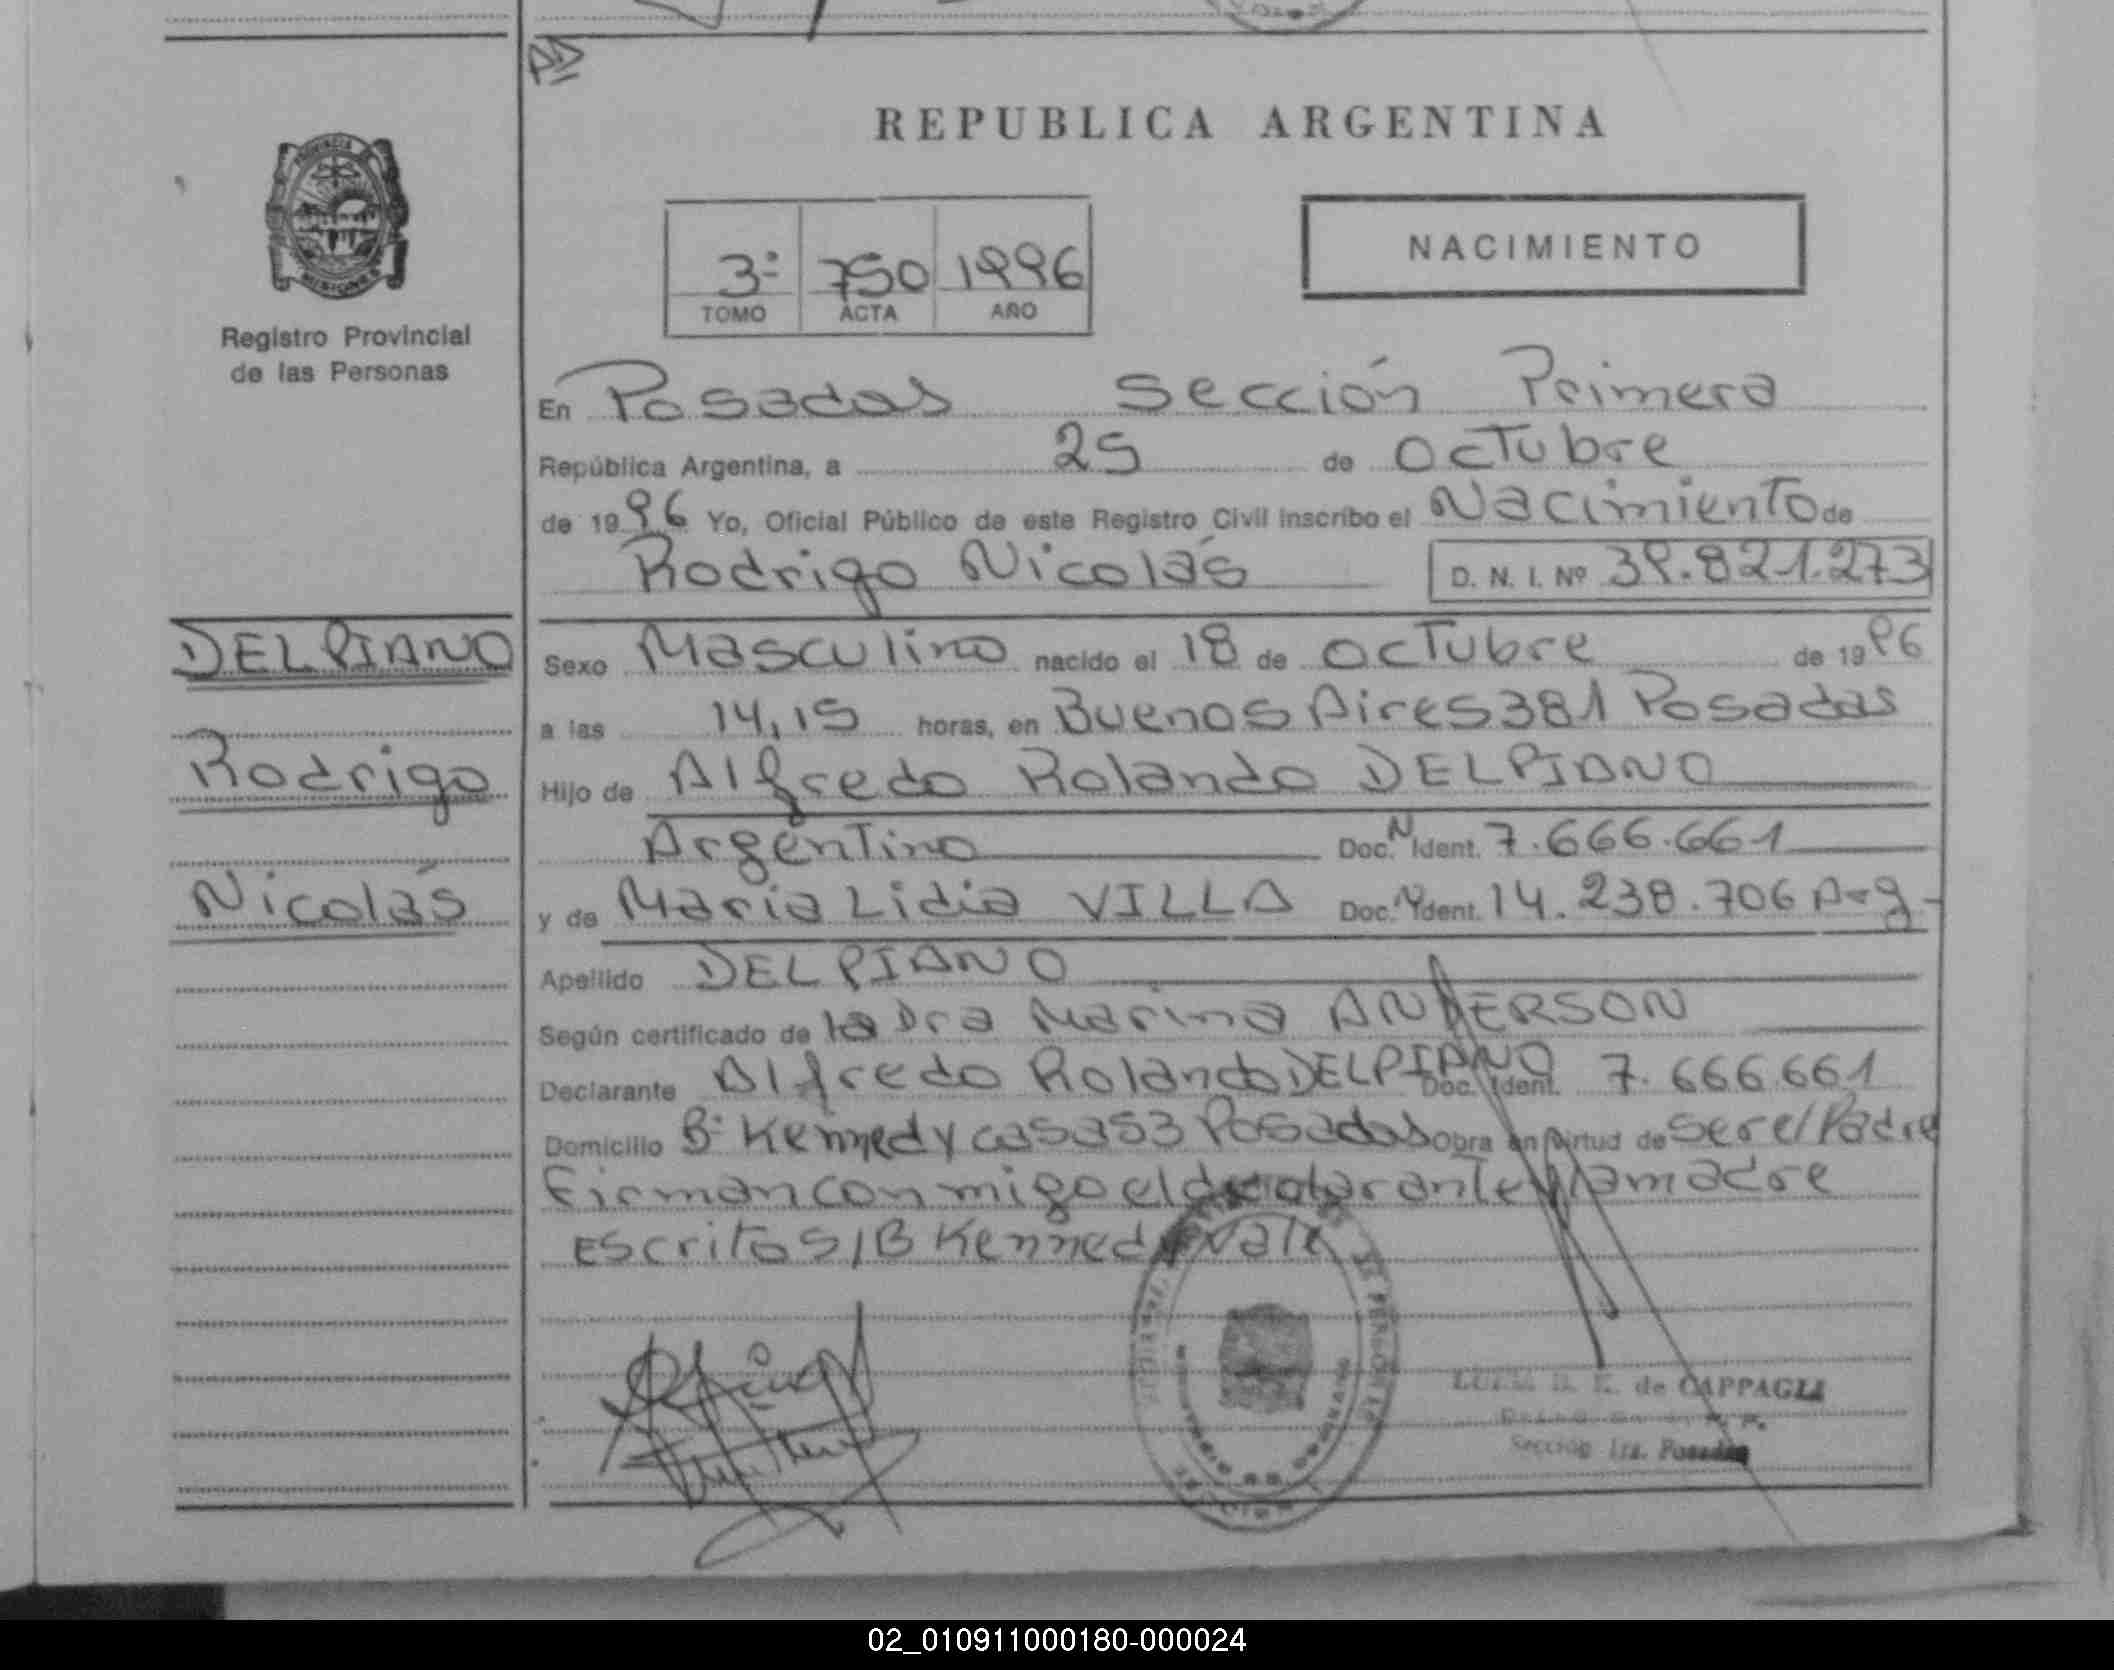 REPUBLICA ARGENTINA
PROVINCIA DE MISIONES
Registro Provincial
de las Personas
3º 750 1996
TOMO ACTA AÑO
NACIMIENTO
En Posadas Sección Primera
República Argentina, a 25 de Octubre
de 1996 Yo, Oficial Público de este Registro Civil inscribo el Nacimiento de
Rodrigo Nicolás D. N. I. Nº 39.821.273
DELPIANO
Rodrigo
Nicolás
Sexo Masculino nacido el 18 de Octubre de 1996
a las 14,15 horas, en Buenos Aires 381 Posadas
Hijo de Alfredo Rolando DELPIANO
Argentino Doc. N Ident. 7.666.661
y de Maria Lidia VILLA Doc. N Ident. 14.238.706 Arg-
Apellido DELPIANO
Según certificado de la Dra Marina ANDERSON
Declarante Alfredo Rolando DELPIANO Doc. Ident. 7.666.661
Domicilio Bº Kennedy casa 53 Posadas Obra en virtud de ser el Padre
Firman conmigo el declarante y la madre
Escritos/B Kennedy Vale
de CAPPAGLI
Sección 1ra. Posadas
02_010911000180-000024